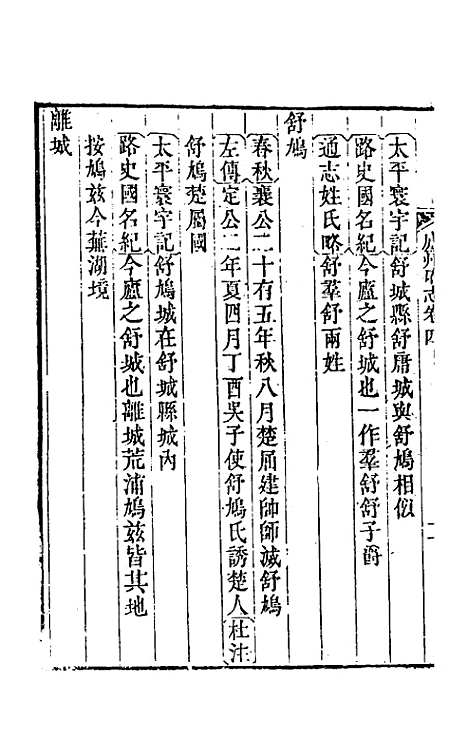 太平寰宇記舒城縣舒庸城與舒鳩相似
路史國名紀今廬之舒城也一作羣舒舒子爵
通志姓氏略舒羣舒兩姓
舒鳩
春秋襄公二十有五年秋八月楚屈建帥師滅舒鳩
左傳定公二年夏四月丁酉吳子使舒鳩氏誘楚人杜注
舒鳩楚屬國
太平寰宇記舒鳩城在舒城縣城內
路史國名紀今廬之舒城也離城荒浦鳩兹皆其地
按鳩兹今蕪湖境
離城